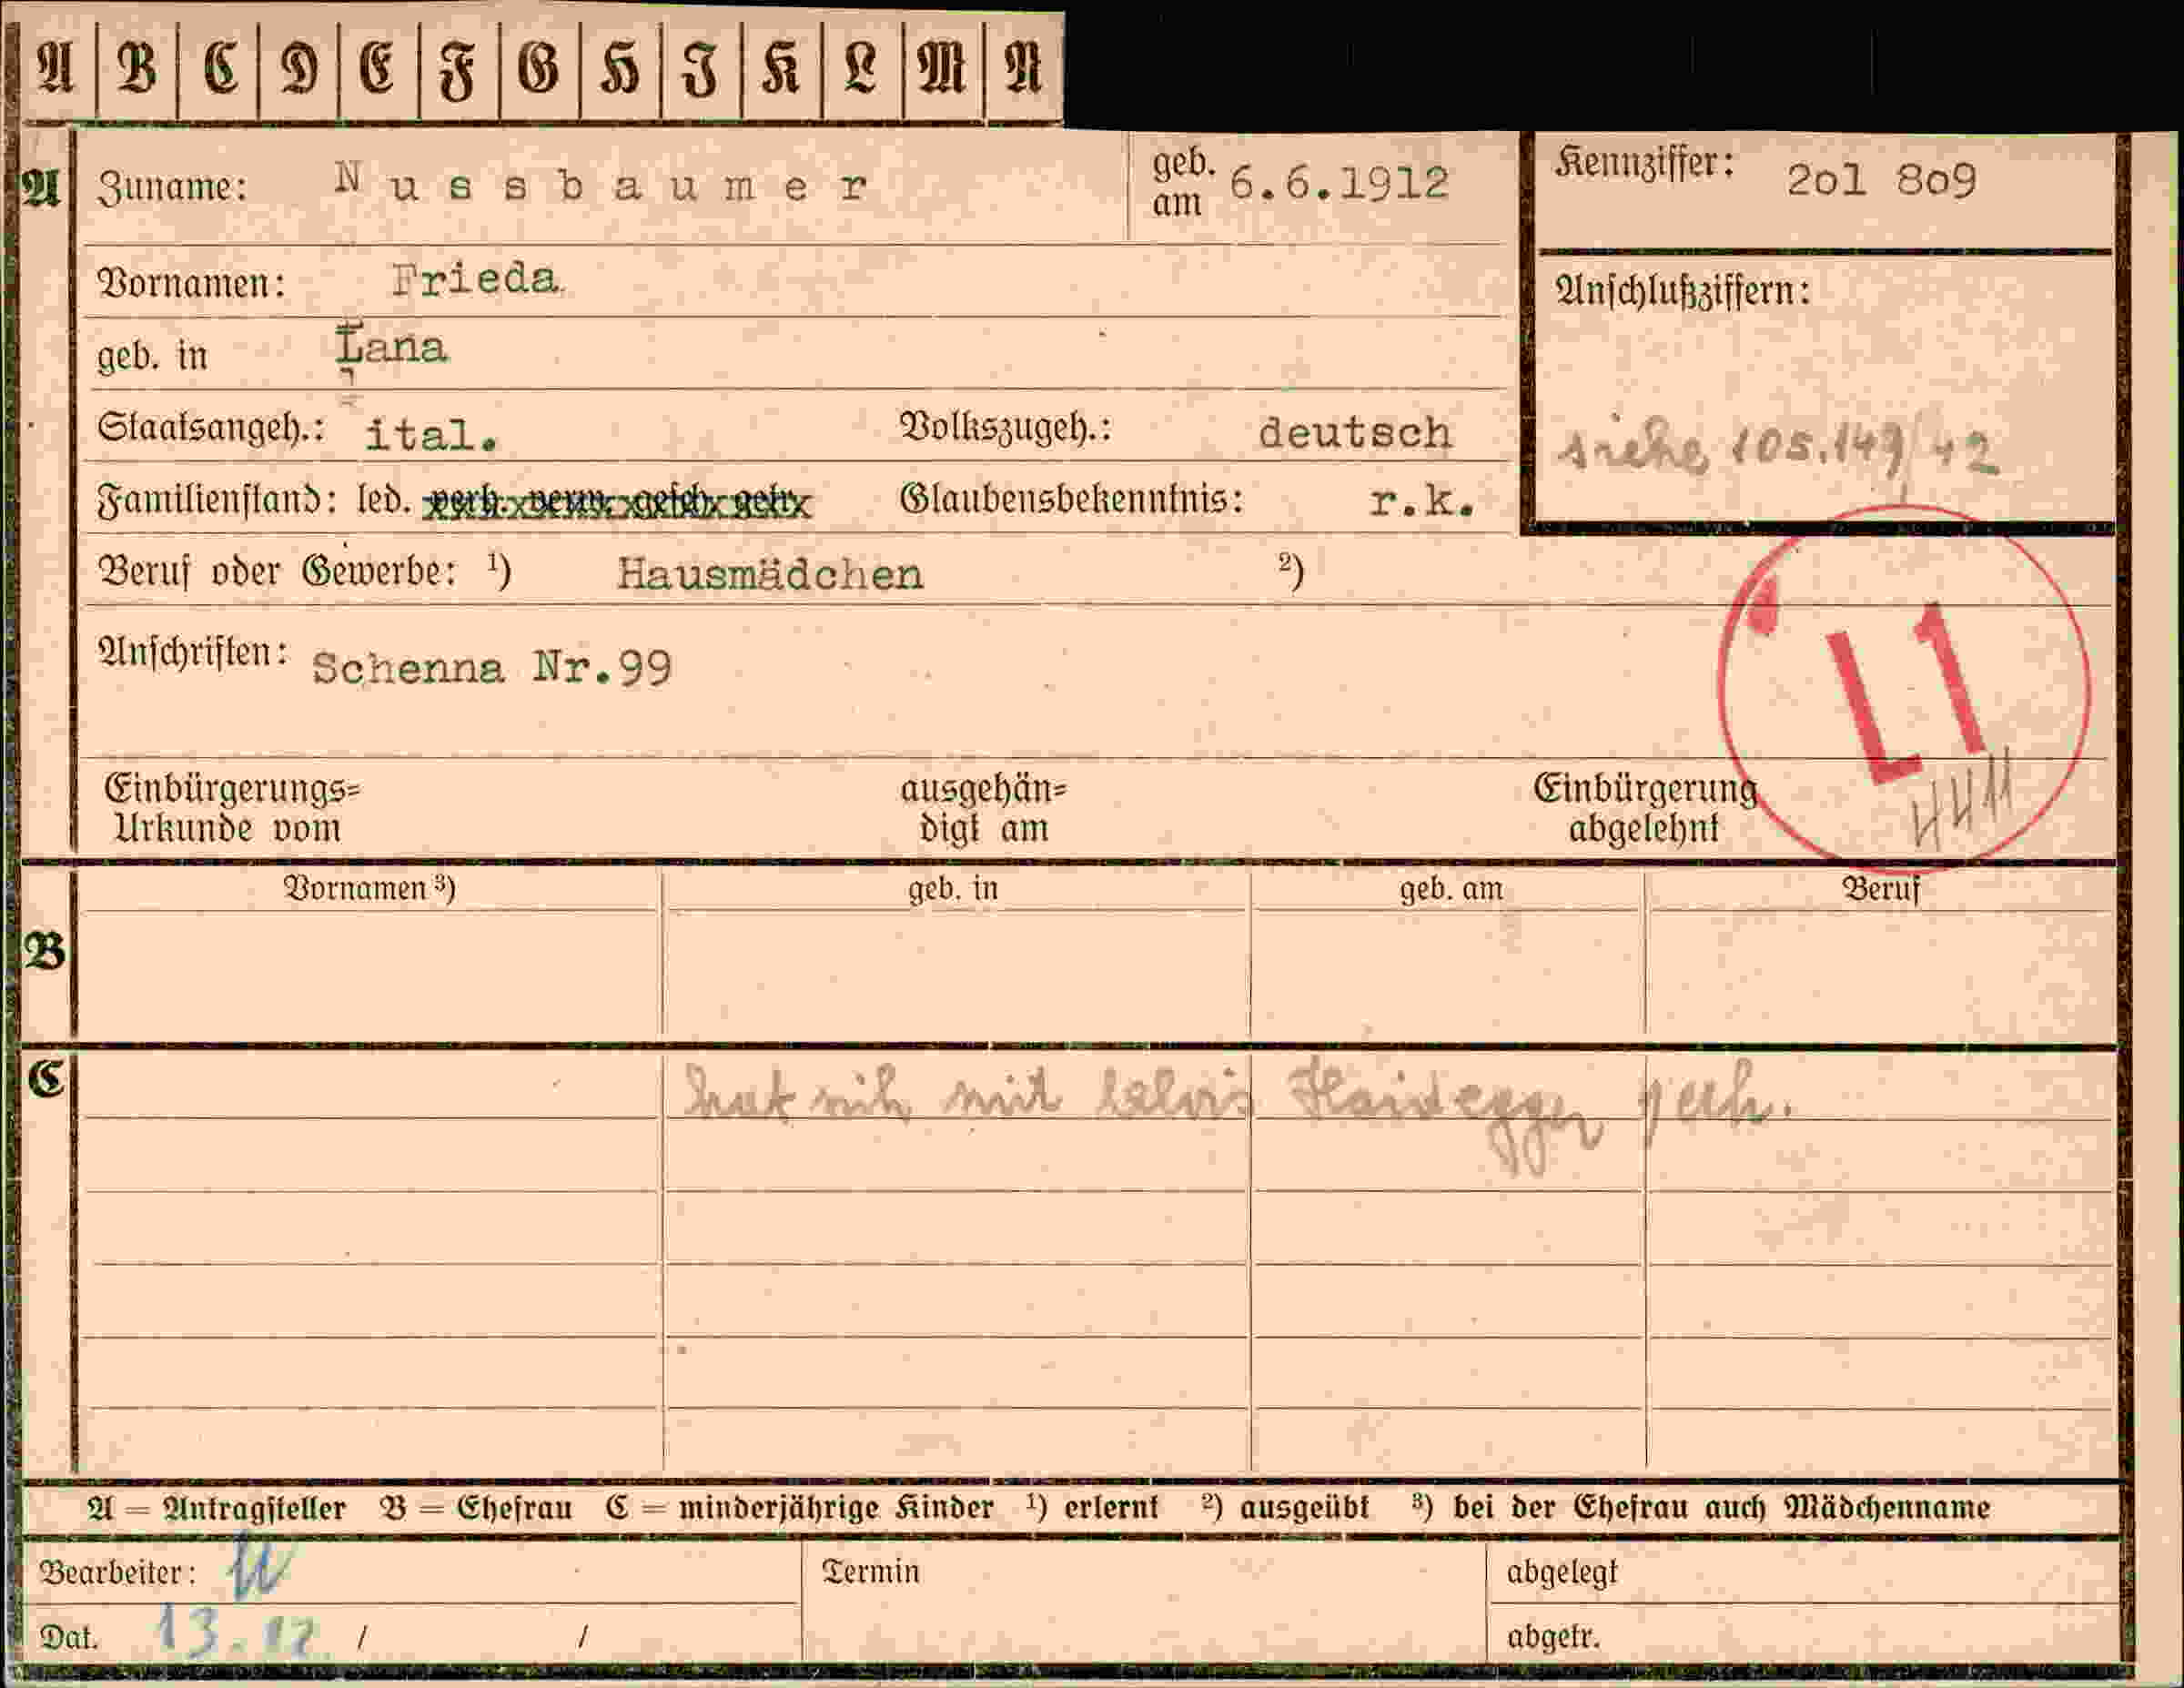 A B C D E F G H J K L M N
A Zuname: Nussbaumer geb. am 6.6.1912 Kennziffer: 2ol 8o9
Vornamen: Frieda
Anschlußziffern:
geb. in Lana
Staatsangeh.: ital. Volkszugeh.: deutsch
siehe 105.149/42
Familienstand: led. verh. verw. gesch. getr. Glaubensbekenntnis: r.k.
Beruf oder Gewerbe: ¹) Hausmädchen ²)
L1
Anschriften: Schenna Nr.99
Einbürgerungs=
Urkunde vom
ausgehän=
digt am
Einbürgerung
abgelehnt
Vornamen ³) geb. in geb. am Beruf
B
C
hat sich mit Alois Haidegger
A = Antragsteller B = Ehefrau C = minderjährige Kinder ¹) erlernt ²) ausgeübt ³) bei der Ehefrau auch Mädchenname
Bearbeiter: Termin abgelegt
Dat. 13.12 / / abgetr.